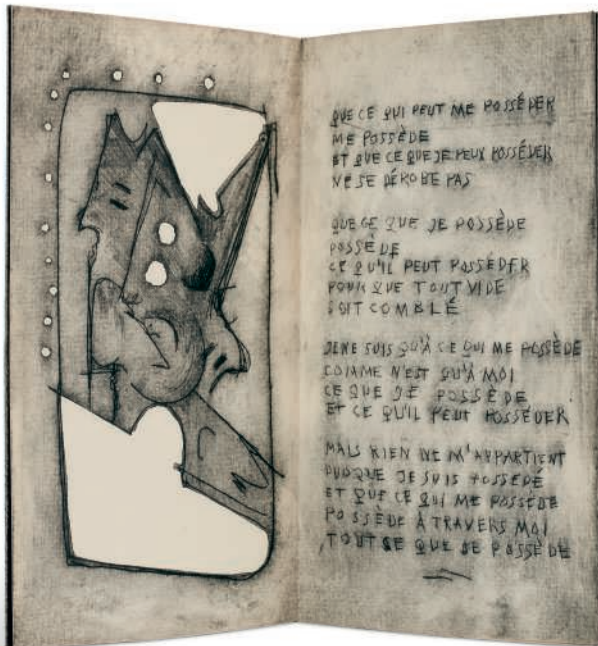 QUE CE QUI PEUT ME POSSÉDER
ME POSSÈDE
ET QUE CE QUE JE PEUX POSSÉDER
NE SE DÉROBE PAS
QUE CE QUE JE POSSÈDE
POSSÈDE
CE QU'IL PEUT POSSÉDER
POUR QUE TOUT VIDE
SOIT COMBLÉ
JE NE SUIS QU'À CE QUI ME POSSÈDE
COMME N'EST QU'À MOI
CE QUE JE POSSÈDE
ET CE QU'IL PEUT POSSÉDER
MAIS RIEN NE M'APPARTIENT
PUISQUE JE SUIS POSSÉDÉ
ET QUE CE QUI ME POSSÈDE
POSSÈDE À TRAVERS MOI
TOUT CE QUE JE POSSÈDE